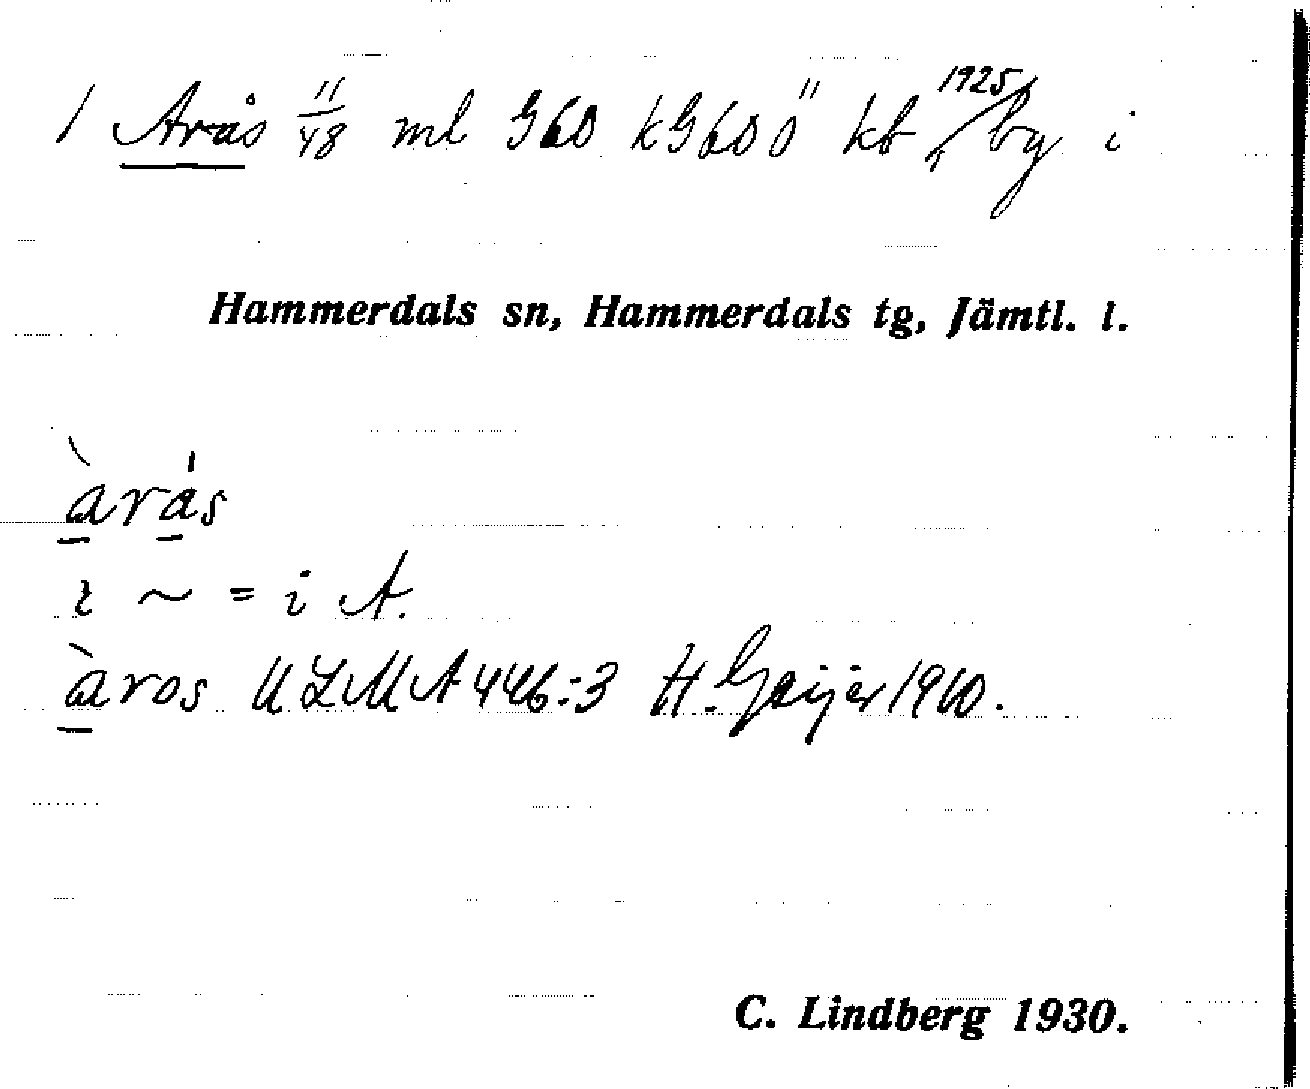 1 Arås 11/48 ml G60 kG60Ö kb 1925 by i
Hammerdals sn, Hammerdals tg, Jämtl. l.
àrás
i ~ = i A.
àros ULMA 446:3 H. Geijer 1910.
C. Lindberg 1930.